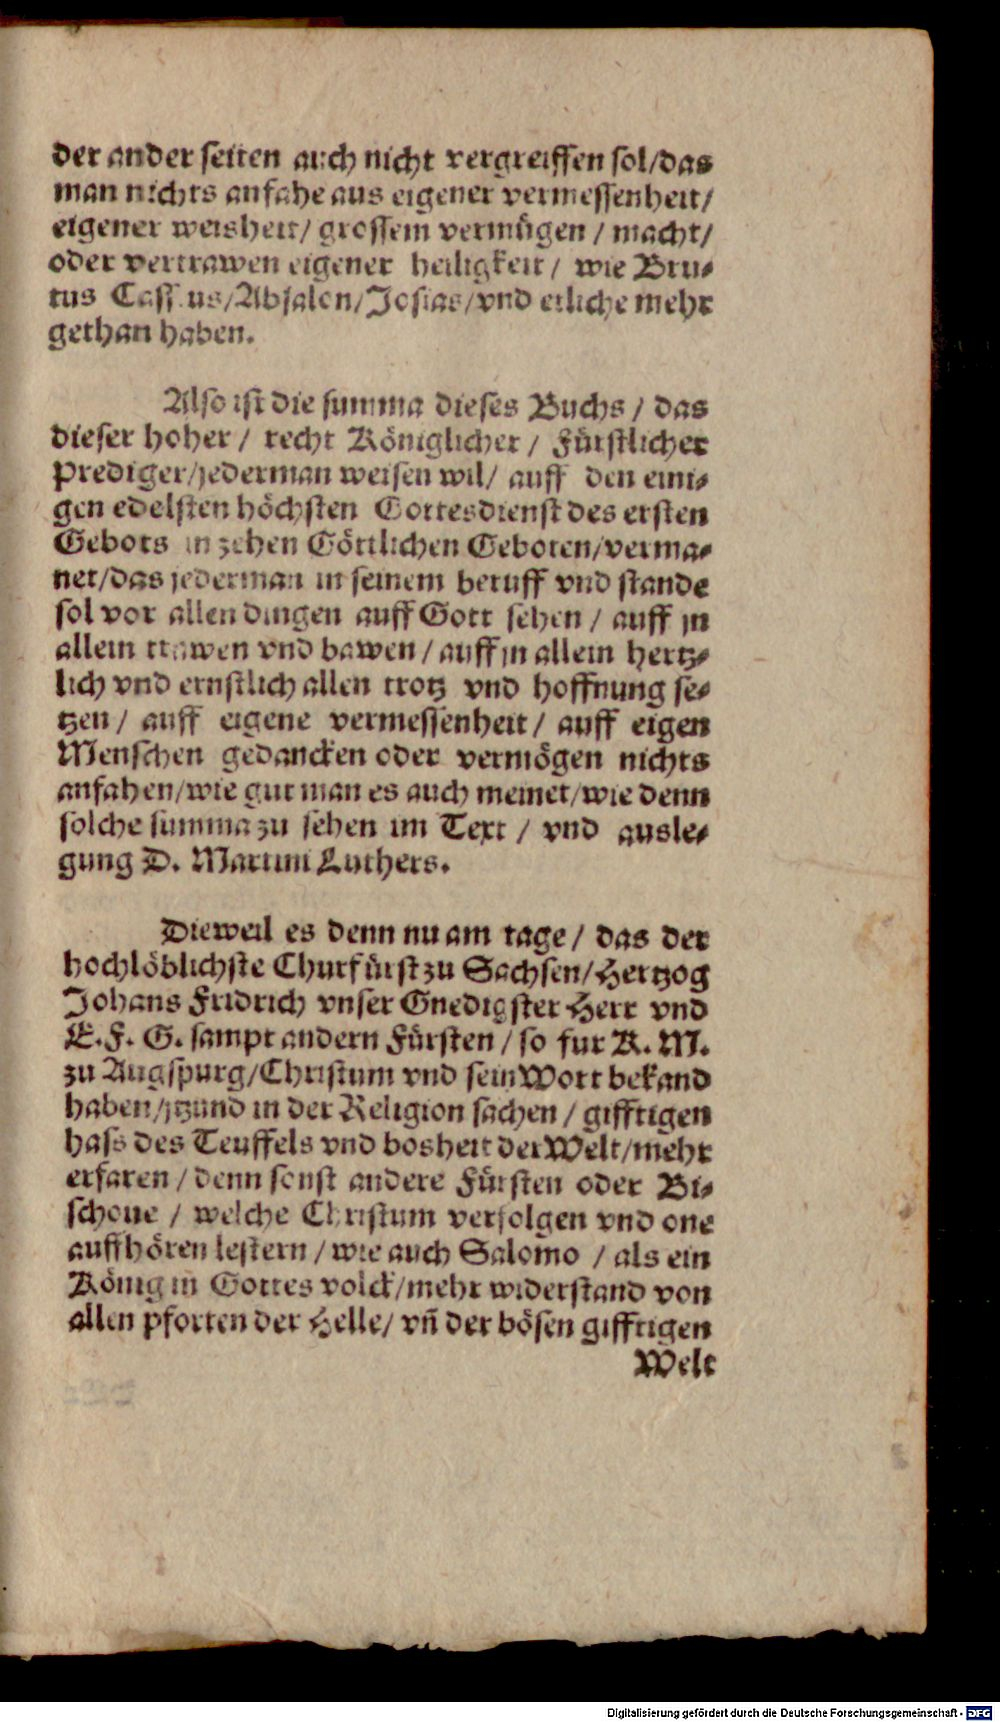 der ander seiten auch nicht vergreiffen sol/das
man nichts anfahe aus eigener vermessenheit/
eigener weisheit/ grossem vermügen / macht/
oder vertrawen eigener heiligkeit / wie Bru-
tus Cassius/Absalon/Josias/vnd etliche mehr
gethan haben.
Also ist die summa dieses Buchs / das
dieser hoher / recht Königlicher / Fürstlicher
Prediger/jederman weisen wil/ auff den eini-
gen edelsten höchsten Gottesdienst des ersten
Gebots in zehen Göttlichen Geboten/verma-
net/das jederman in seinem beruff vnd stande
sol vor allen dingen auff Gott sehen / auff jn
allein trawen vnd bawen / auff jn allein hertz-
lich vnd ernstlich allen trotz vnd hoffnung se-
tzen / auff eigene vermessenheit / auff eigen
Menschen gedancken oder vermögen nichts
anfahen/wie gut man es auch meinet/wie denn
solche summa zu sehen im Text / vnd ausle-
gung D. Martini Luthers.
Dieweil es denn nu am tage / das der
hochlöblichste Churfürst zu Sachsen/Hertzog
Johans Fridrich vnser Gnedigster Herr vnd
E. F. G. sampt andern Fürsten / so fur K. M.
zu Augspurg/Christum vnd sein Wort bekand
haben/jtzund in der Religion sachen / gifftigen
hass des Teuffels vnd bosheit der Welt/mehr
erfaren / denn sonst andere Fürsten oder Bi-
schoue / welche Christum verfolgen vnd one
auffhören lestern / wie auch Salomo / als ein
König in Gottes volck/mehr widerstand von
allen pforten der Helle/ vñ der bösen gifftigen
Welt
Digitalisierung gefördert durch die Deutsche Forschungsgemeinschaft - DFG